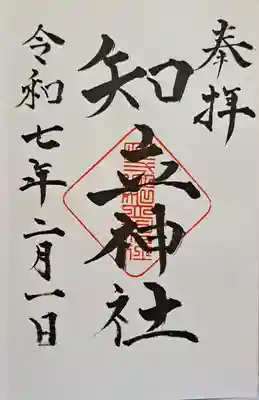 奉拝
知立神社
令和七年二月一日